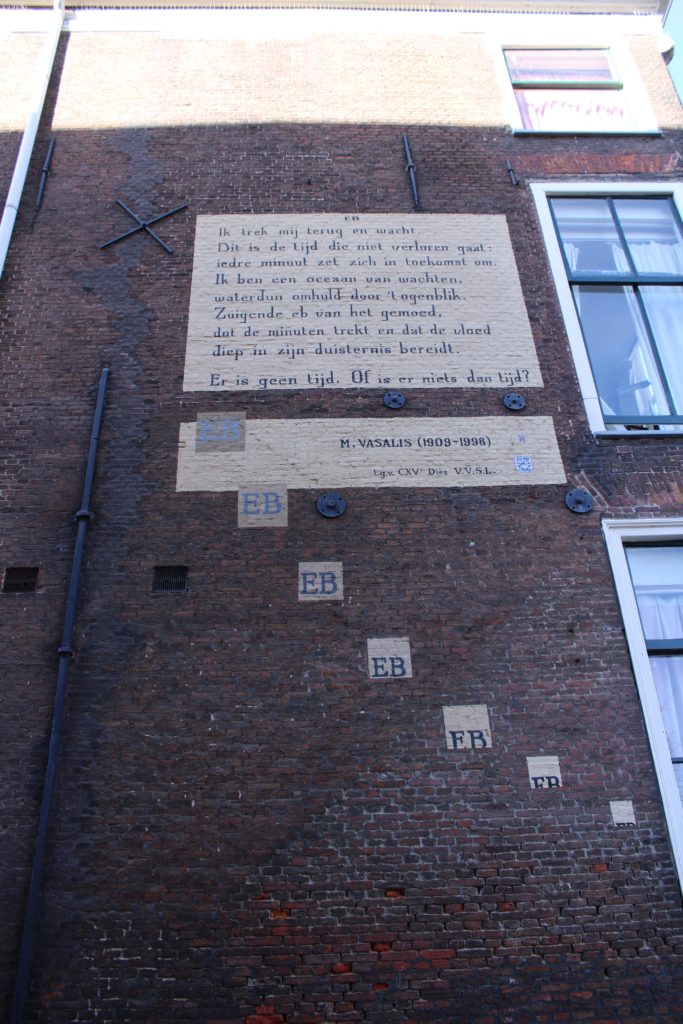 EB
Ik trek mij terug en wacht.
Dit is de tijd die niet verloren gaat:
iedre minuut zet zich in toekomst om.
Ik ben een oceaan van wachten,
waterdun omhuld door 't ogenblik.
Zuigende eb van het gemoed,
dat de minuten trekt en dat de vloed
diep in zijn duisternis bereidt.
Er is geen tijd. Of is er niets dan tijd?
EB
M. VASALIS (1909-1998)
l.g.v. CXVe Dies V.V.S.L.
EB
EB
EB
EB
EB
EB